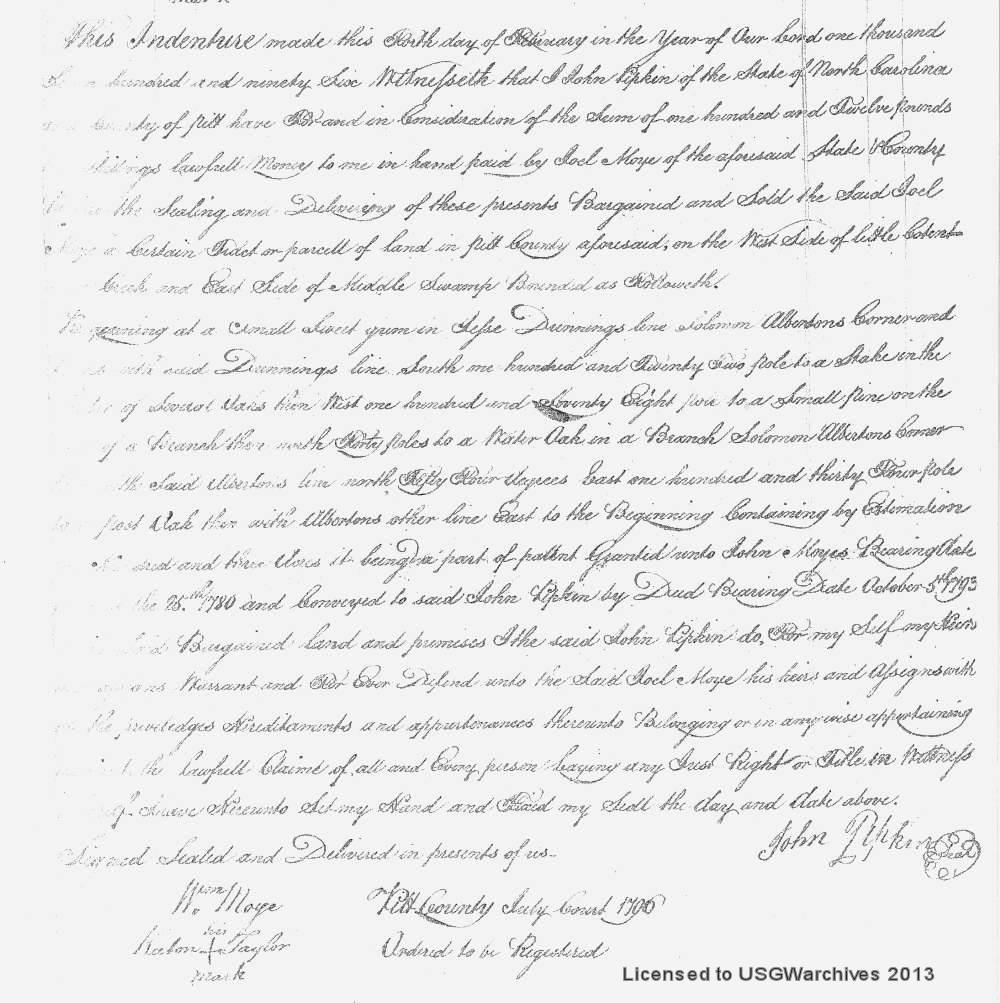 This Indenture made this Forth day of February in the Year of Our Lord one thousand
hundred and ninety Six Witnesseth that I John Pipkin of the State of North Carolina
County of Pitt have For and in Consideration of the Sum of one hundred and Twelve pounds
lawfull Money to me in hand paid by Joel Moye of the aforesaid State & County
the Sealing and Delivering of these presents Bargained and Sold the Said Joel
Moye a Certain Tract or parcell of land in pitt County aforesaid, on the West Side of little Cotent-
Creek and East Side of Middle Swamp Bounded as Followeth.
at a Small Sweet gum in Jesse Dunnings line Solomon Albertons Corner and
with said Dunnings line South one hundred and Twenty Two pole to a Stake in the
of Several Oaks then West one hundred and Seventy Eight pole to a Small pine on the
of a Branch then north Forty poles to a Water Oak in a Branch Solomon Albertons Corner
Said Albertons line north Fifty Four Degrees East one hundred and thirty Four pole
post Oak then with Albertons other line East to the Beginning Containing by Estimation
and three Acres it being a part of patent Granted unto John Moyes Bearing Date
the 25th 1780 and Conveyed to said John Pipkin by Deed Bearing Date October 5th 1793
Bargained land and premises I the said John Pipkin do, For my Self my Heirs
Warrant and For Ever Defend unto the Said Joel Moye his heirs and Assigns with
the priviledges Hereditaments and appurtenances thereunto Belonging or in any wise appurtaining
lawfull Claime of all and Every person laying any Just Right or Title in Wittness
I have Hereunto Set my Hand and Fixed my Seall the day and date above.
John Pipkin Seal
Signed Sealed and Delivered in presents of us-
Wm Moye
Pitt County July Court 1796
his
Taylor
Ordered to be Registered
mark
Licensed to USGWarchives 2013